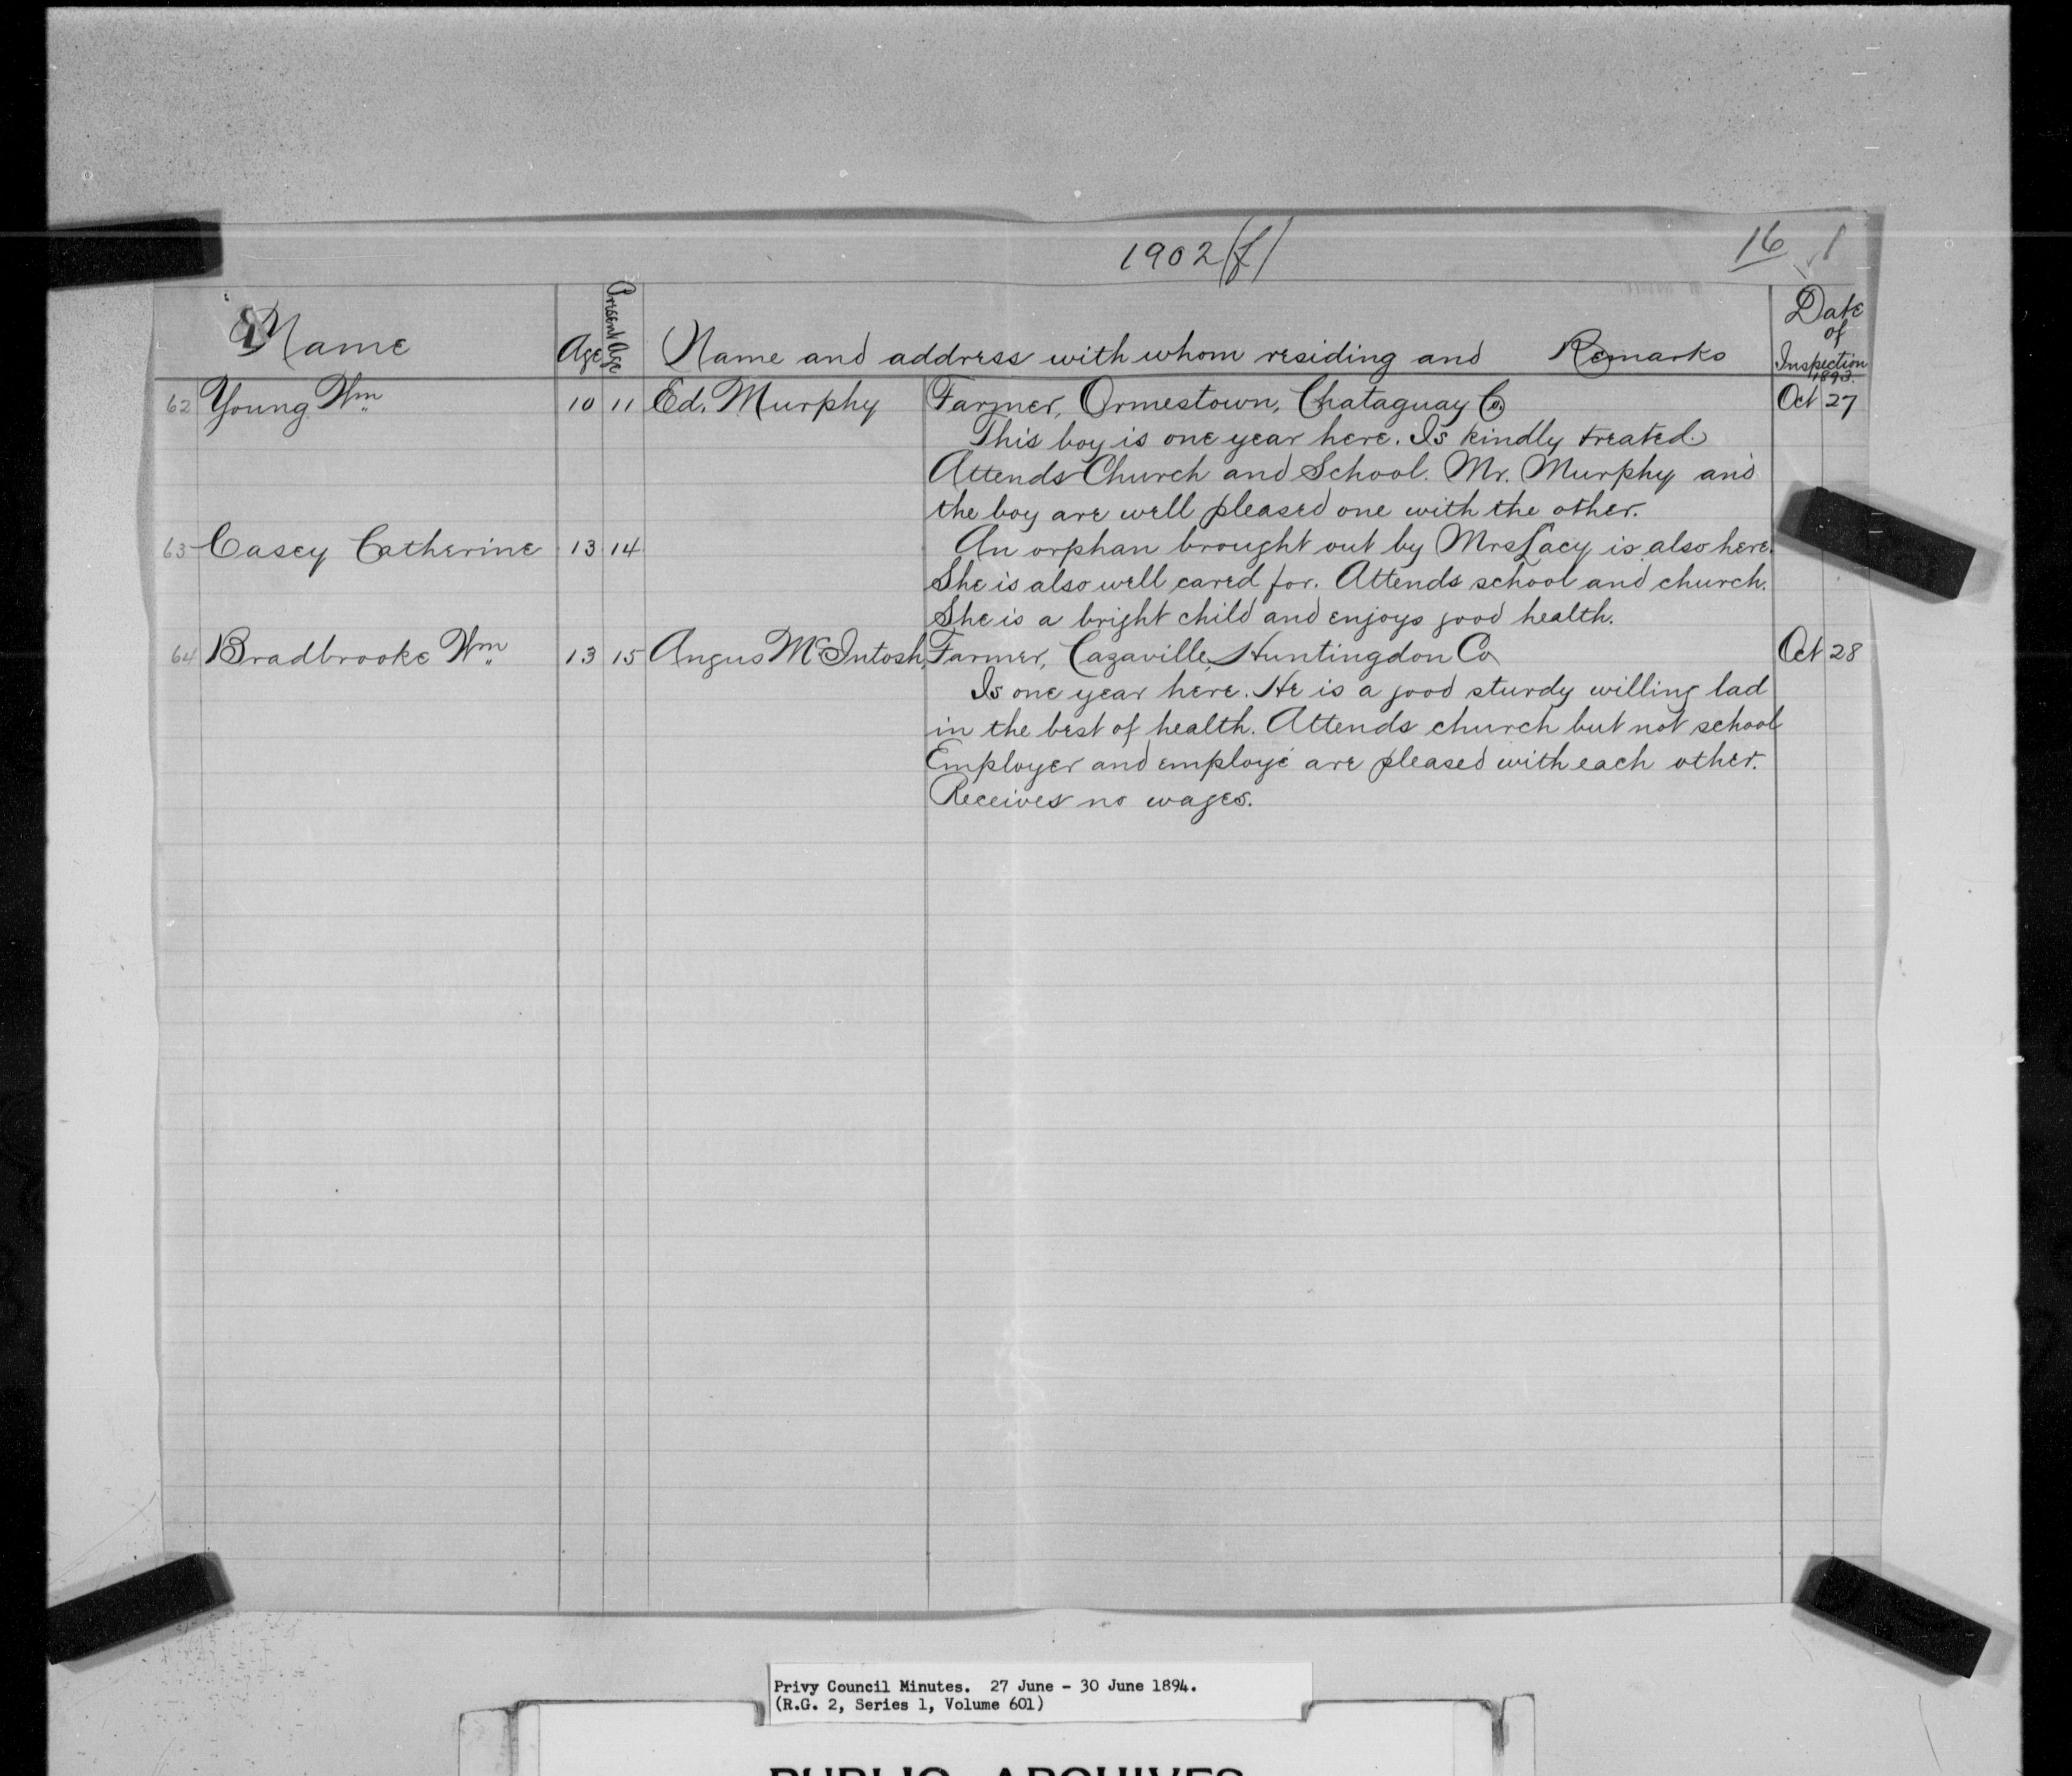 1902 (f)
16 1
Name Age Present Age Name and address with whom residing and Remarks Date of Inspection 1893.
62 Young Wm 10 11 Ed. Murphy Farmer, Ormestown, Chataguay Co. Oct 27
This boy is one year here. Is kindly treated.
Attends Church and School. Mr. Murphy and
the boy are well pleased one with the other.
63 Casey Catherine 13 14 An orphan brought out by Mrs Lacy is also here.
She is also well cared for. Attends school and church.
She is a bright child and enjoys good health.
64 Bradbrooke Wm 13 15 Angus McIntosh, Farmer, Cazaville, Huntingdon Co Oct 28
Is one year here. He is a good sturdy willing lad
in the best of health. Attends church but not school
Employer and employé are pleased with each other.
Receives no wages.
Privy Council Minutes. 27 June - 30 June 1894.
(R.G. 2, Series 1, Volume 601)
PUBLIC ARCHIVES